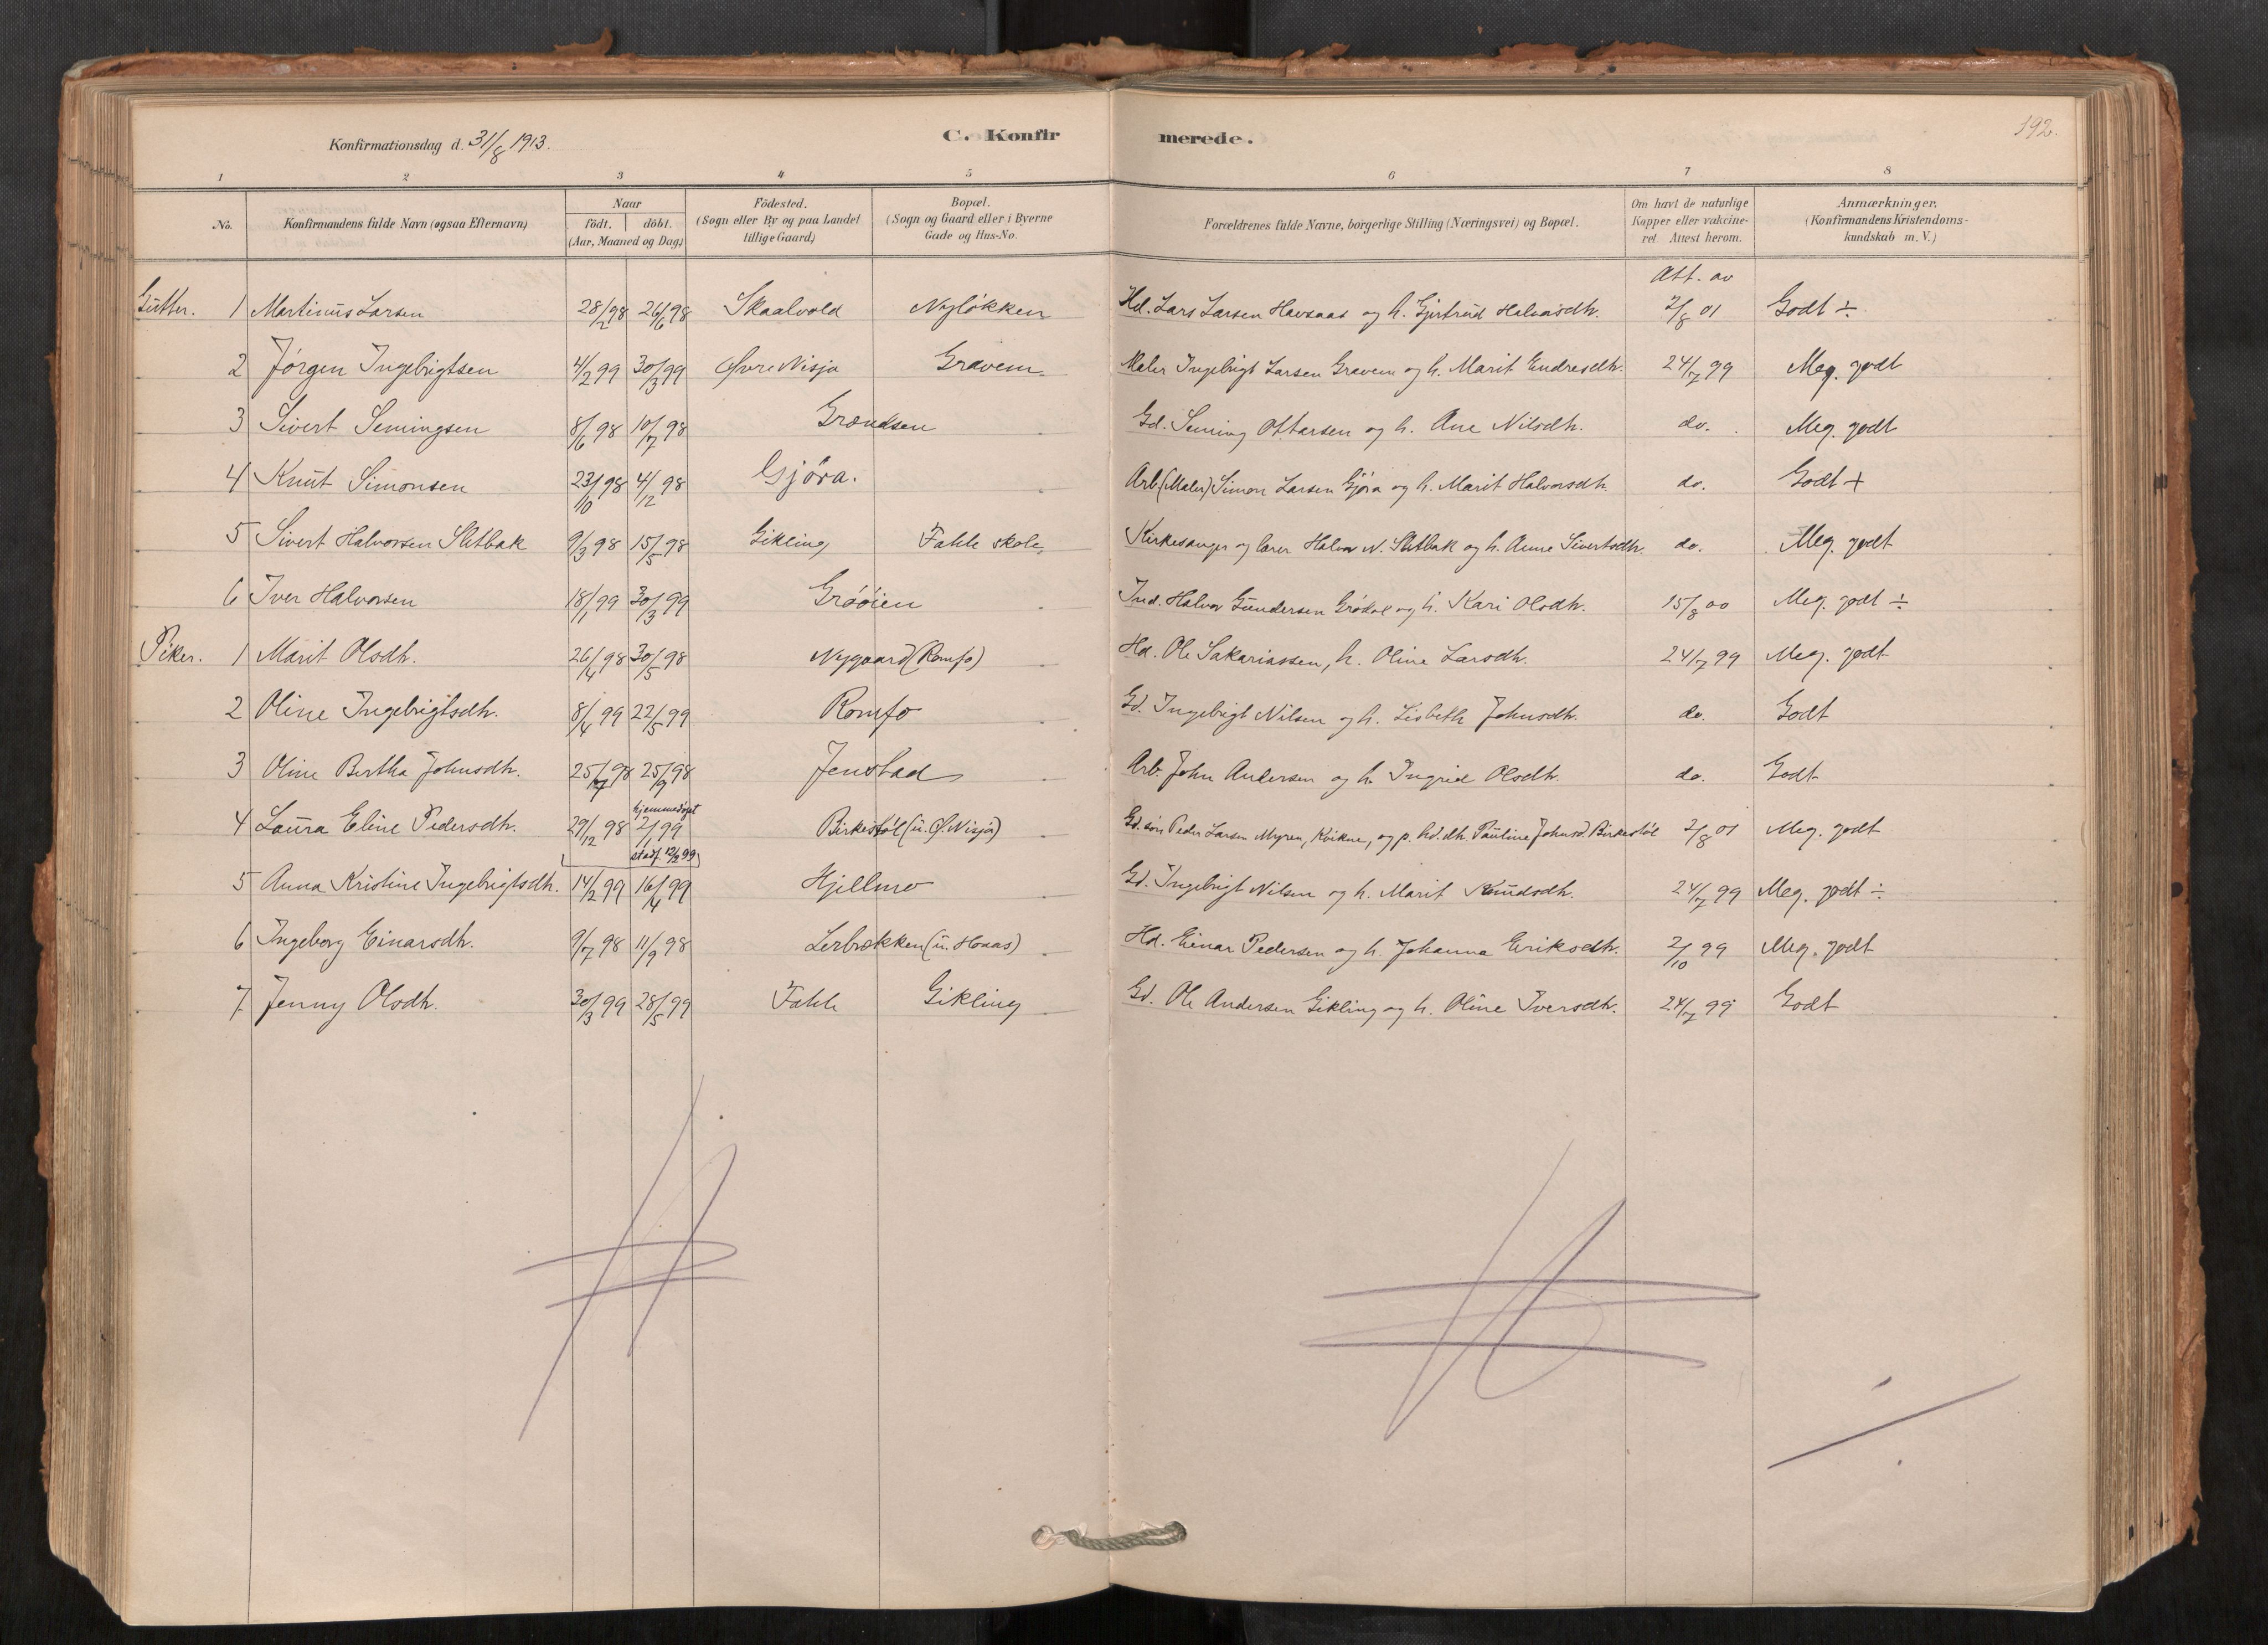 Konfirmationsdag d. 31/8 1913.
C. Konfirmerede.
192.
1 2 3 4 5 6 7 8
No. Konfirmandens fulde Navn (ogsaa Efternavn) Naar födt. döbt. (Aar, Maaned og Dag) Födested. (Sogn eller By og paa Landet tillige Gaard) Bopæl. (Sogn og Gaard eller i Byerne Gade og Hus-No. Forældrenes fulde Navne, borgerlige Stilling (Næringsvei) og Bopæl. Om havt de naturlige Kopper eller vakcineret Attest herom. Anmærkninger. (Konfirmandens Kristendomskundskab m. V.)
Att. av
Gutter. 1 Martinus Larsen 28/2 98 26/6 98 Skaalvold Nyløkken Hd. Lars Larsen Havsaas og h. Gjertrud Halvorsdh. 2/8 01 Godt ÷
2 Jørgen Ingebrigtsen 4/2 99 30/3 99 Øvre Nisja Gravem Maler Ingebrigt Larsen Gravem og h. Marit Endresdh. 24/7 99 Meg. godt
3 Sivert Semingsen 8/6 98 10/7 98 Grændsen Gd. Seming Ottarsen og h. Ane Nilsdh. do. Meg. godt
4 Knut Simonsen 23/10 98 4/12 98 Gjøra. Arb. (Maler) Simon Larsen Gjøra og h. Marit Halvorsdh. do. Godt +
5 Sivert Halvorsen Sletbak 9/3 98 15/5 98 Gikling Fahle skole Kirkesanger og lærer Halvor N. Sletbak og h. Anne Sivertsdh. do. Meg. godt
6 Iver Halvorsen 18/1 99 30/3 99 Grøøien Ind. Halvor Gundersen Grødal og h. Kari Olsdh. 15/8 00 Meg. godt ÷
Piker. 1 Marit Olsdh. 26/4 98 30/5 98 Nygaard (Romfo) Hd. Ole Sakariassen, h. Oline Larsdh. 24/7 99 Meg. godt
2 Oline Ingebrigtsdh. 8/4 99 22/5 99 Romfo Gd. Ingebrigt Nilsen og h. Lisbeth Johnsdh. do. Godt
3 Oline Bertha Johnsdh. 25/7 98 25/9 98 Jenstad Arb. John Andersen og h. Ingrid Olsdh. do. Godt
hjemmedøpt
4 Laura Eline Pedersdh. 29/12 98 2/1 99 Birkestøl (u. Ø. Nisja) Gd.søn Peder Larsen Myren, Kvikne, og p. hd.dh. Pauline Johnsd. Birkestøl 2/8 01 Meg. godt
stadf. 12/2 99
5 Anna Kristine Ingebrigtsdh. 14/2 99 16/4 99 Hjellmo Gd. Ingebrigt Nilsen og h. Marit Knudsdh. 24/7 99 Meg. godt ÷
6 Ingeborg Einarsdh. 9/7 98 11/9 98 Lerbækken (u. Hoaas) Hd. Einar Pedersen og h. Johanna Eriksdh. 2/10 99 Meg. godt
7. Jenny Olsdh. 30/3 99 28/5 99 Fahle Gikling Gd. Ole Andersen Gikling og h. Oline Iversdh. 24/7 99 Godt